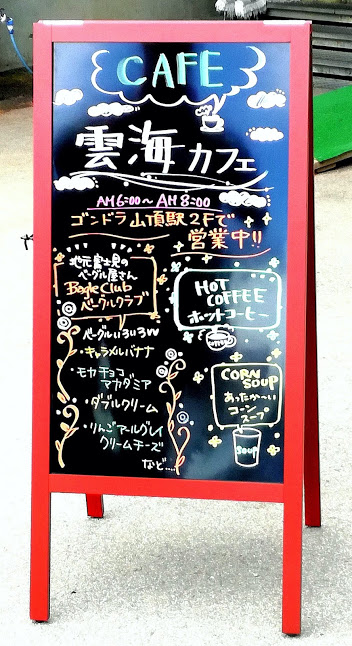 CAFE
雲海カフェ
AM6:00～AM8:00
ゴンドラ山頂駅2Fで
営業中!!
地元富士見の
ベーグル屋さん
Bagle Club
ベーグルクラブ
ベーグルいろいろ
・キャラメルバナナ
・モカチョコ
マカダミア
・ダブルクリーム
・りんごアールグレイ
クリームチーズ
など....
HOT
COFFEE
ホットコーヒー
CORN
SOUP
あったか〜い
コーン
スープ
SOUP